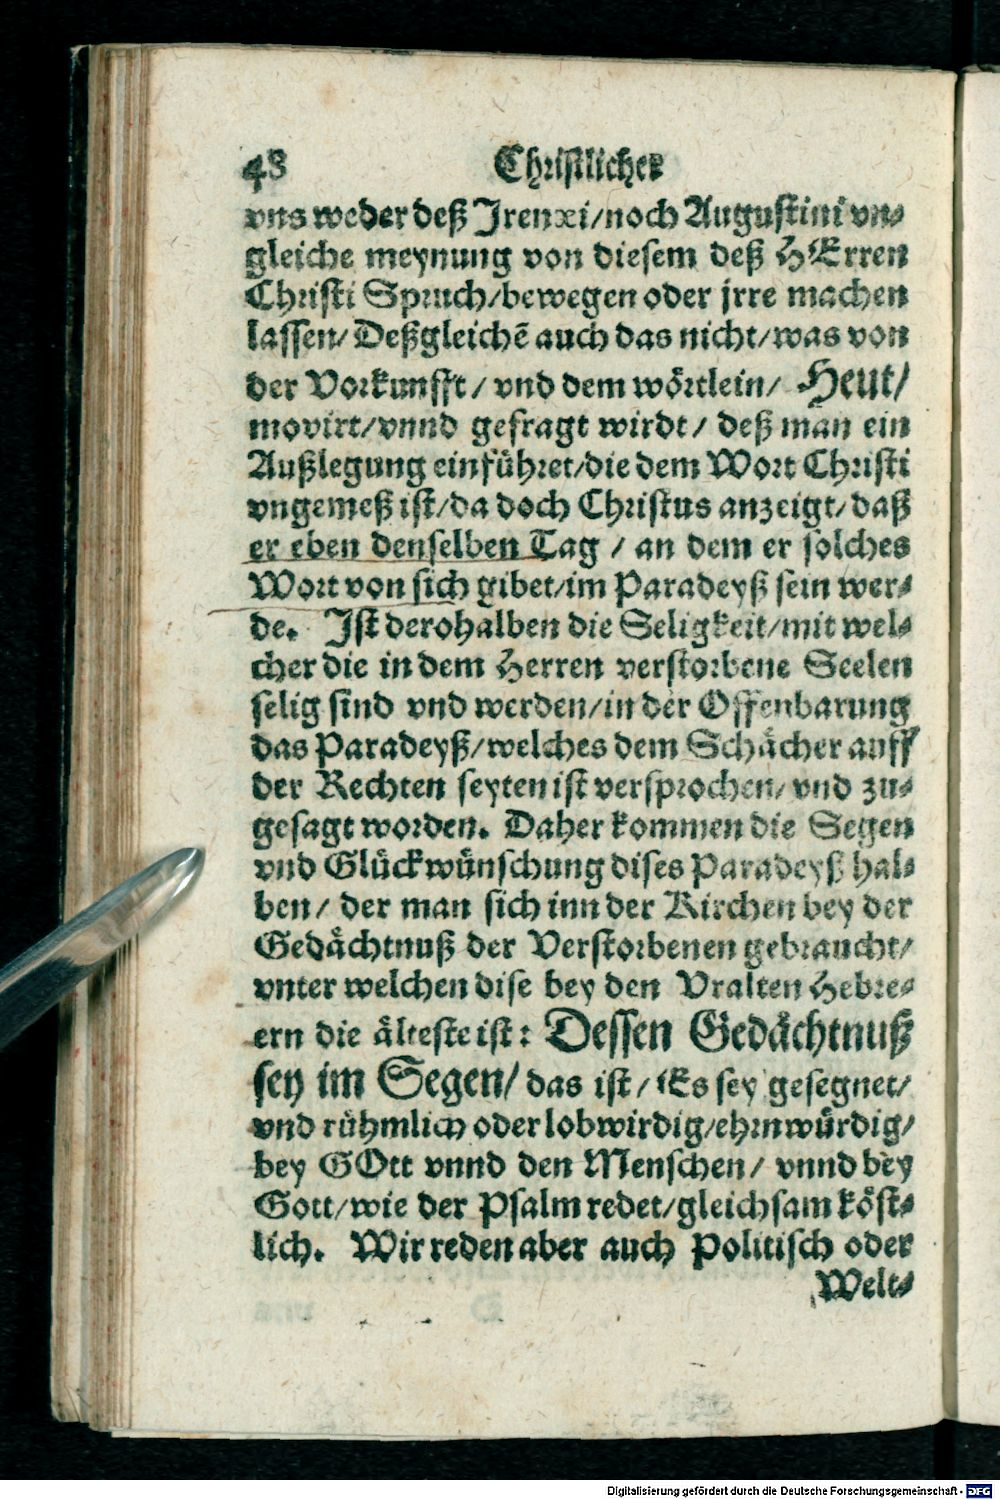 48 Christlicher
vns weder deß Irenæi/noch Augustini vn-
gleiche meynung von diesem deß HErren
Christi Spruch/bewegen oder jrre machen
lassen/ Deßgleichẽ auch das nicht/was von
der Vorkunfft/ vnd dem wörtlein/ Heut/
movirt/vnnd gefragt wirdt/ deß man ein
Außlegung einführet/die dem Wort Christi
vngemeß ist/da doch Christus anzeigt/daß
er eben denselben Tag / an dem er solches
Wort von sich gibet/im Paradeyß sein wer-
de. Ist derohalben die Seligkeit/mit wel-
cher die in dem Herren verstorbene Seelen
selig sind vnd werden/in der Offenbarung
das Paradeyß/welches dem Schächer auff
der Rechten seyten ist versprochen/ vnd zu-
gesagt worden. Daher kommen die Segen
vnd Glückwünschung dises Paradeyß hal-
ben/ der man sich inn der Kirchen bey der
Gedächtnuß der Verstorbenen gebraucht/
vnter welchen dise bey den Vralten Hebre-
ern die älteste ist: Dessen Gedächtnuß
sey im Segen/ das ist / Es sey gesegnet/
vnd rühmlich oder lobwirdig/ehrnwürdig/
bey GOtt vnnd den Menschen/ vnnd bey
Gott/wie der Psalm redet/gleichsam köst-
lich. Wir reden aber auch Politisch oder
Welt-
Digitalisierung gefördert durch die Deutsche Forschungsgemeinschaft - DFG